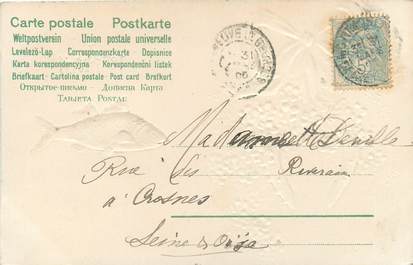 Carte postale Postkarte
Weltpostverein Union postale universelle
Levelező-Lap Correspondenzkarte Dopisnice
Karta korespondencyjna Korespondenční lístek
Briefkaart - Cartolina postale - Post card - Brefkort
Открытое-письмо - Дописна Карта
Tarjeta Postal
Mademoiselle
Rue des Riverain
à Crosnes
Seine & Oise